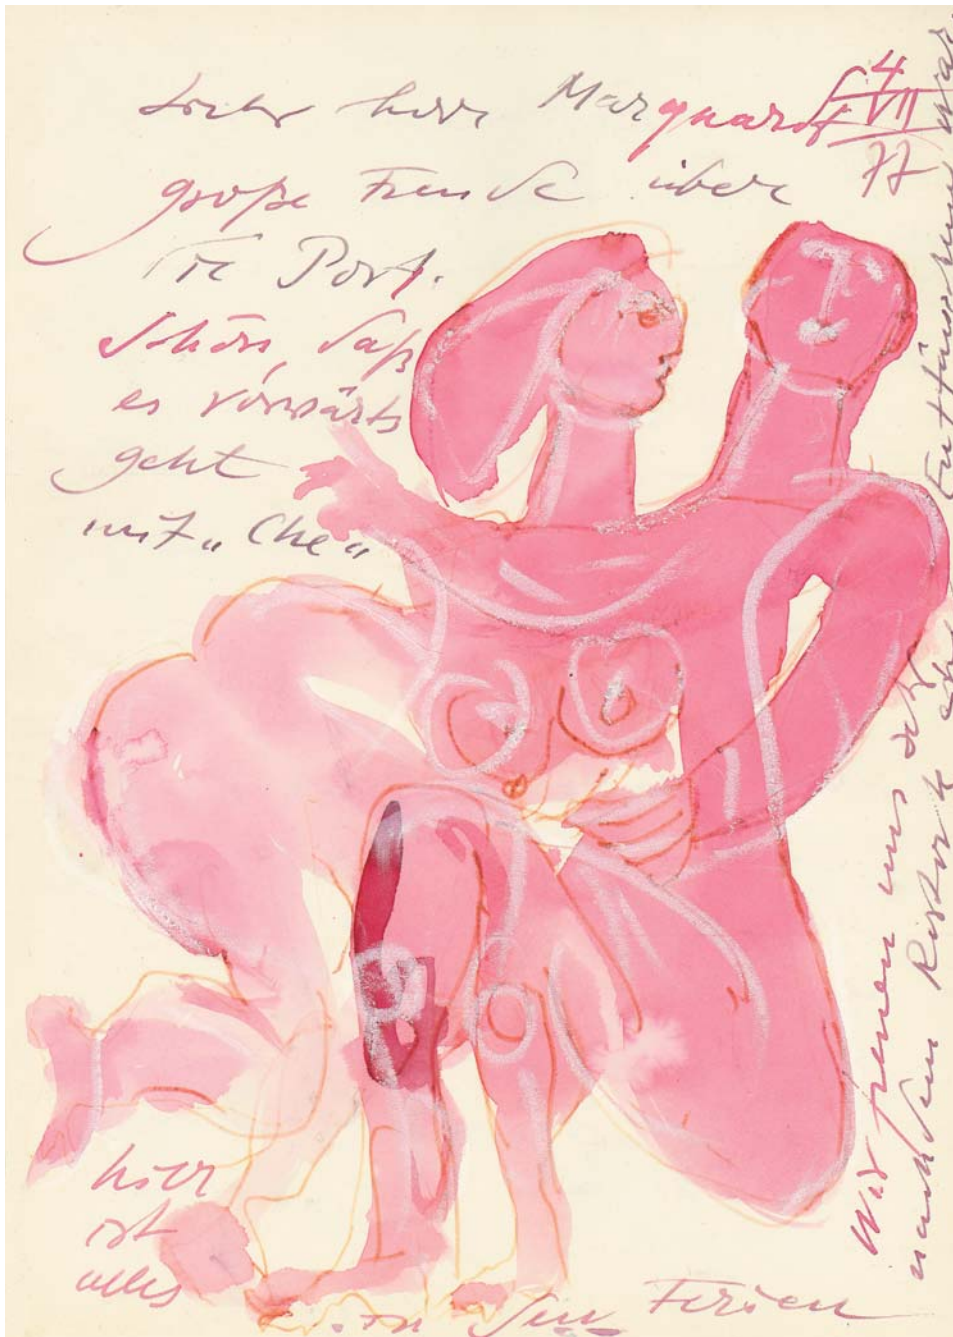 Lieber Herr Marquardt
4
VII
77
große Freude über
die Post.
Schön, daß
es vorwärts
geht
mit „Che"
hier
ist
alles
in den Ferien
Wir freuen uns
nachdem Rostock eine Enttäuschung war.